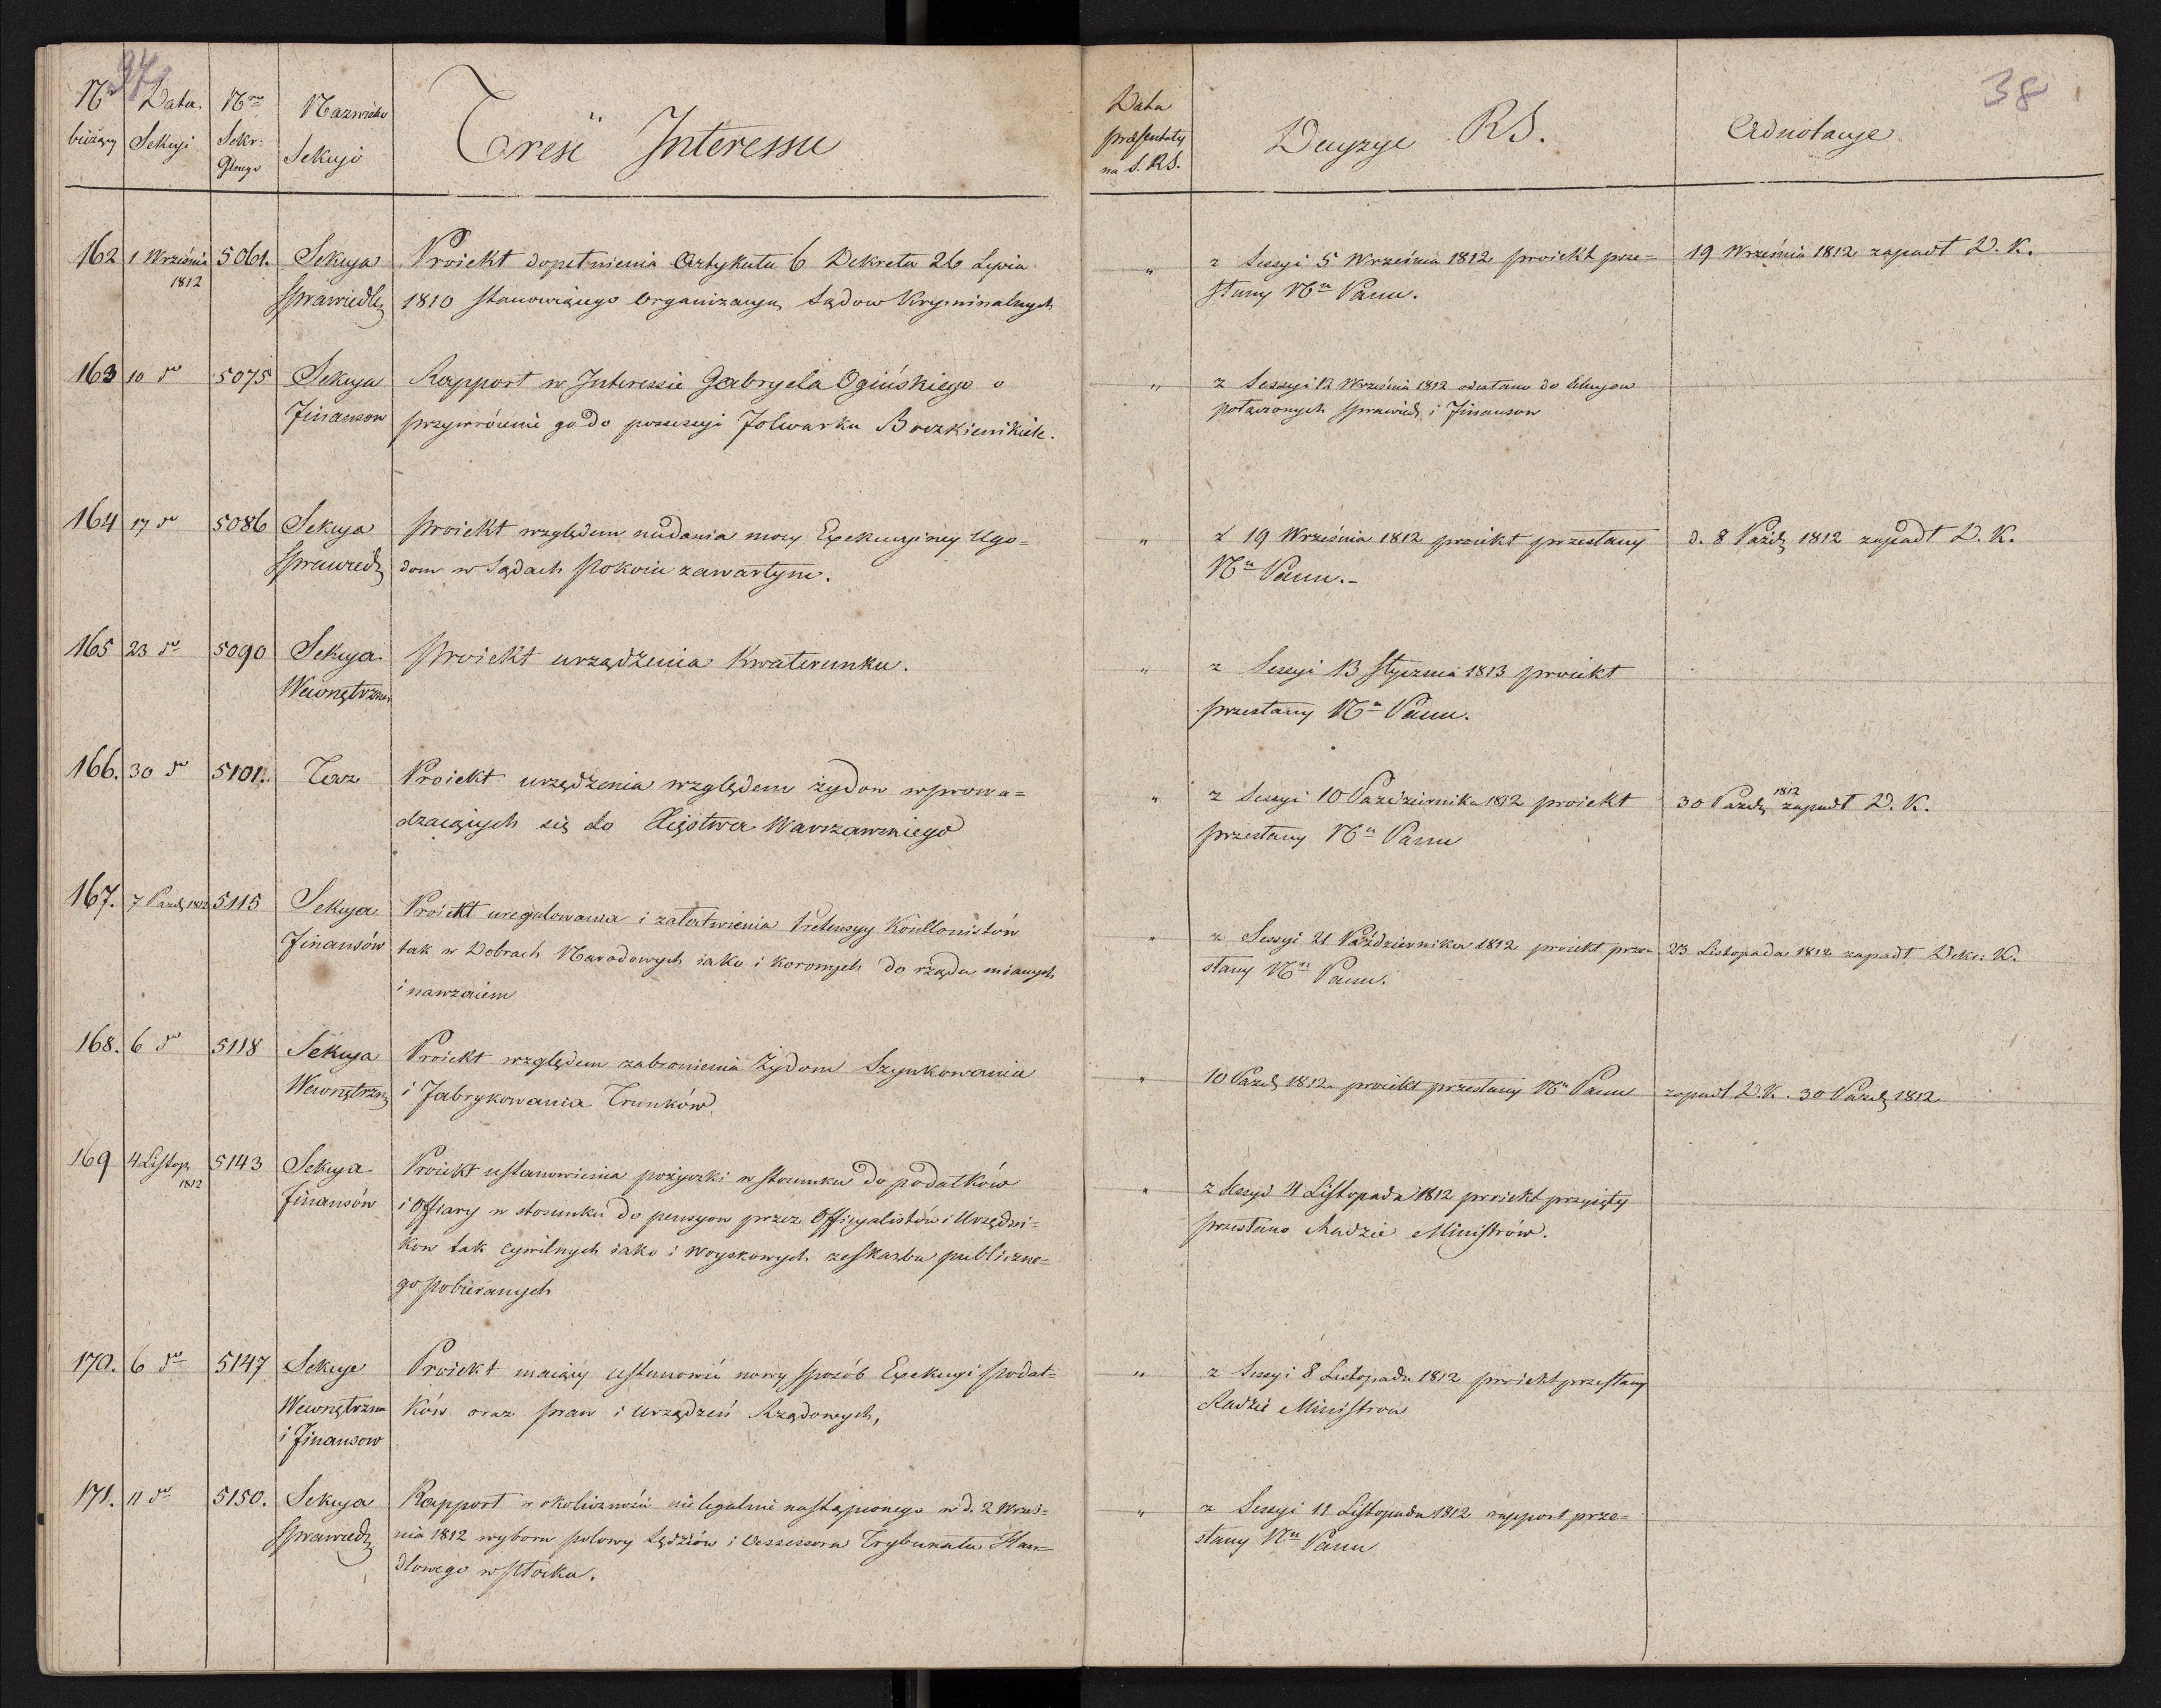 37
38
Nr bieżący
Data Sekcyi
Nro Sekr: Głnego
Nazwisko Sekcyi
Treść Interessu
Data præsentaty na S. RS.
Decyzye RS.
Adnotacye
162 1 Września 1812 5061. Sekcya Sprawiedl
Proiekt dopełnienia Artykułu 6 Dekretu 26 Lipca
1810 stanowiącego organizacyą Sądow Kryminalnych
" z Sessyi 5 Września 1812 proiekt prze=
słany Nu Panu.
19 Września 1812 zapadł D. K.
163 10 do 5075 Sekcya Finansow
Rapport w Interessie Gabryela Ogińskiego o
przywrócenie go do possessyi Folwarku
" z Sessyi 12 Września 1812 odesłano do Sekcyow
połączonych Sprawied i Finansow
164 17 do 5086 Sekcya Sprawied
proiekt względem nadania mocy Exekucyiney Ugo=
dom w Sądach Pokoiu zawartym.
" z 19 Września 1812 proiekt przesłany
Nu Panu.-
d. 8 Paźdz 1812 zapadł D. K.
165 23 do 5090 Sekcya Wewnętrzna
proiekt urządzenia Kwaterunku.
" z Sessyi 13 Stycznia 1813 proiekt
przesłany Nu Panu.
166. 30 do 5101. Taż
Proiekt urządzenia względem żydow wprowa=
dzaiących się do Xięstwa Warszawskiego
" z Sessyi 10 Października 1812 proiekt
przesłany Nu Panu
30 Paźdz 1812 zapadł D. K.
167. 7 Paźdz 1812 5115 Sekcya Finansów
Proiekt uregulowania i załatwienia Pretensyy Kollonistów
tak w Dobrach Narodowych iako i koronnych do rządu mianych
i nawzaiem
" z Sessyi 21 Października 1812 proiekt prze-
słany Nu Panu.
23 Listopada 1812 zapadł Dekr: K.
168. 6 do 5118 Sekcya Wewnętrzn
Proiekt względem zabronienia Żydom Szynkowania
i Fabrykowania Trunków
" 10 Paźdz 1812 proiekt przesłany Nu Panu
zapadł D. K. 30 Paźdz 1812
169 4 Listop 1812 5143 Sekcya Finansów
Proiekt ustanowienia pożyczki w stosunku do podatków
i Offiary w stosunku do pensyow przez Officyalistów i Urzędni=
kow tak cywilnych iako i Woyskowych ze Skarbu publiczne=
go pobieranych
" z Sessyi 4 Listopada 1812 proiekt przyięty
przesłano Radzie Ministrów.
170. 6 do 5147 Sekcye Wewnętrzna i Finansow
Proiekt maiący ustanowić nowy sposób Exekucyi podat=
ków oraz praw i urządzeń Rządowych,
" z Sessyi 8 Listopada 1812 proiekt przesłany
Radzie Ministrow
171. 11 do 5150. Sekcya Sprawied
Rapport w okoliczności nielegalnie nastąpionego w d. 2 Wrześ=
nia 1812 wyboru połowy Sędziów i Assessora Trybunału Han=
dlowego w Płocku.
" z Sessyi 11 Listopada 1812 rapport prze=
słany Nu Panu